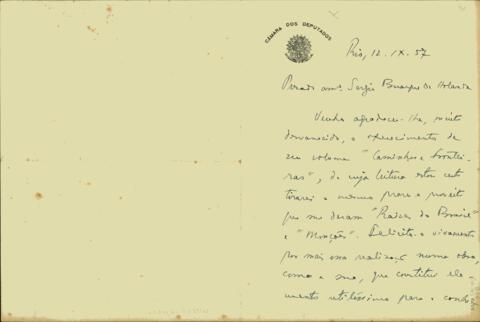 CÂMARA DOS DEPUTADOS
Rio, 12.IX.57
Prezado am.º Sergio Buarque de Holanda
Venho agradecer-lhe, muito
desvanecido, o oferecimento de
seu volume "Caminhos e Frontei-
ras", de cuja leitura estou certo
tirarei o mesmo prazer e proveito
que me deram "Raízes do Brasil"
e "Monções". Felicito-o vivamente
por mais essa realização numa obra,
como a sua, que constitui ele-
mento utilíssimo para o conhe-